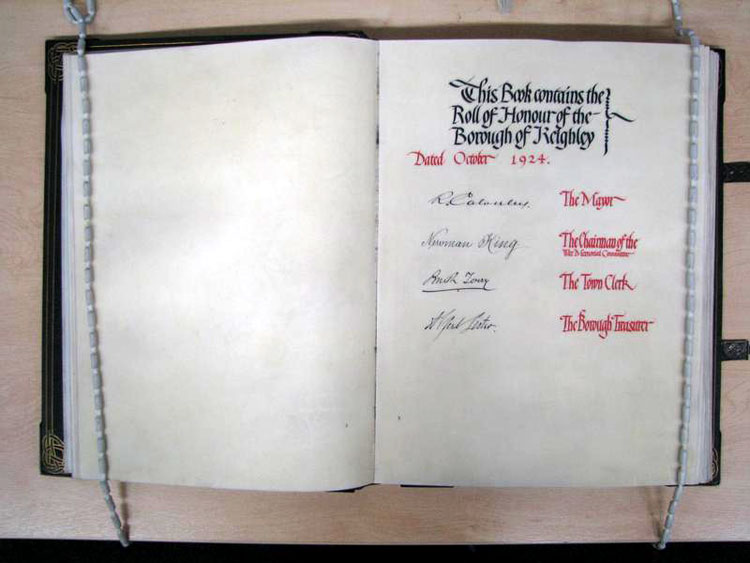 This Book contains the
Roll of Honour of the
Borough of Keighley
Dated October 1924.
The Mayor
Newman King The Chairman of the
War Memorial Committee
The Town Clerk
The Borough Treasurer